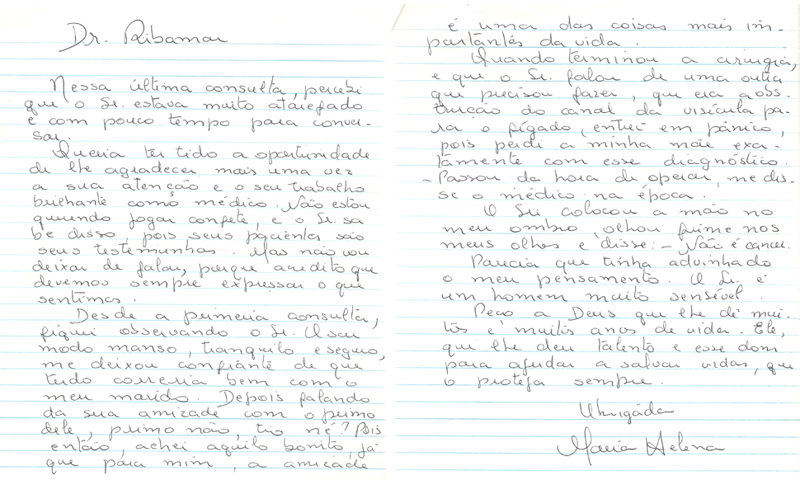 Dr. Ribamar
Nessa última consulta, percebi
que o Sr. estava muito atarefado
e com pouco tempo para conver-
sar.
Queria ter tido a oportunidade
de lhe agradecer mais uma vez
a sua atenção e o seu trabalho
brilhante como médico. Não estou
querendo jogar confete, e o Sr. sa
be disso, pois seus pacientes são
seus testemunhas. Mas não vou
deixar de falar, porque acredito que
devemos sempre expressar o que
sentimos.
Desde a primeira consulta,
fiquei observando o Sr. O seu
modo manso, tranquilo e seguro,
me deixou confiante de que
tudo correria bem com o
meu marido. Depois falando
da sua amizade com o primo
dele, primo não, tio né? Pois
então, achei aquilo bonito, já
que para mim, a amizade
é uma das coisas mais im-
portantes da vida.
Quando terminou a cirurgia,
e que o Sr. falou de uma outra
que precisou fazer, que era a obs-
trução do canal da visícula pa-
ra o fígado, entrei em pânico,
pois perdi a minha mãe exa-
tamente com esse diagnóstico.
- Passou da hora de operar, me dis-
se o médico na época.
O Sr. colocou a mão no
meu ombro, olhou firme nos
meus olhos e disse: - Não é cancer.
Parecia que tinha advinhado
o meu pensamento. O Sr. é
um homem muito sensível.
Peço a Deus que lhe dê mui-
tos e muitos anos de vida. Ele,
que lhe deu talento e esse dom
para ajudar a salvar vidas, que
o proteja sempre.
Obrigada
Maria Helena